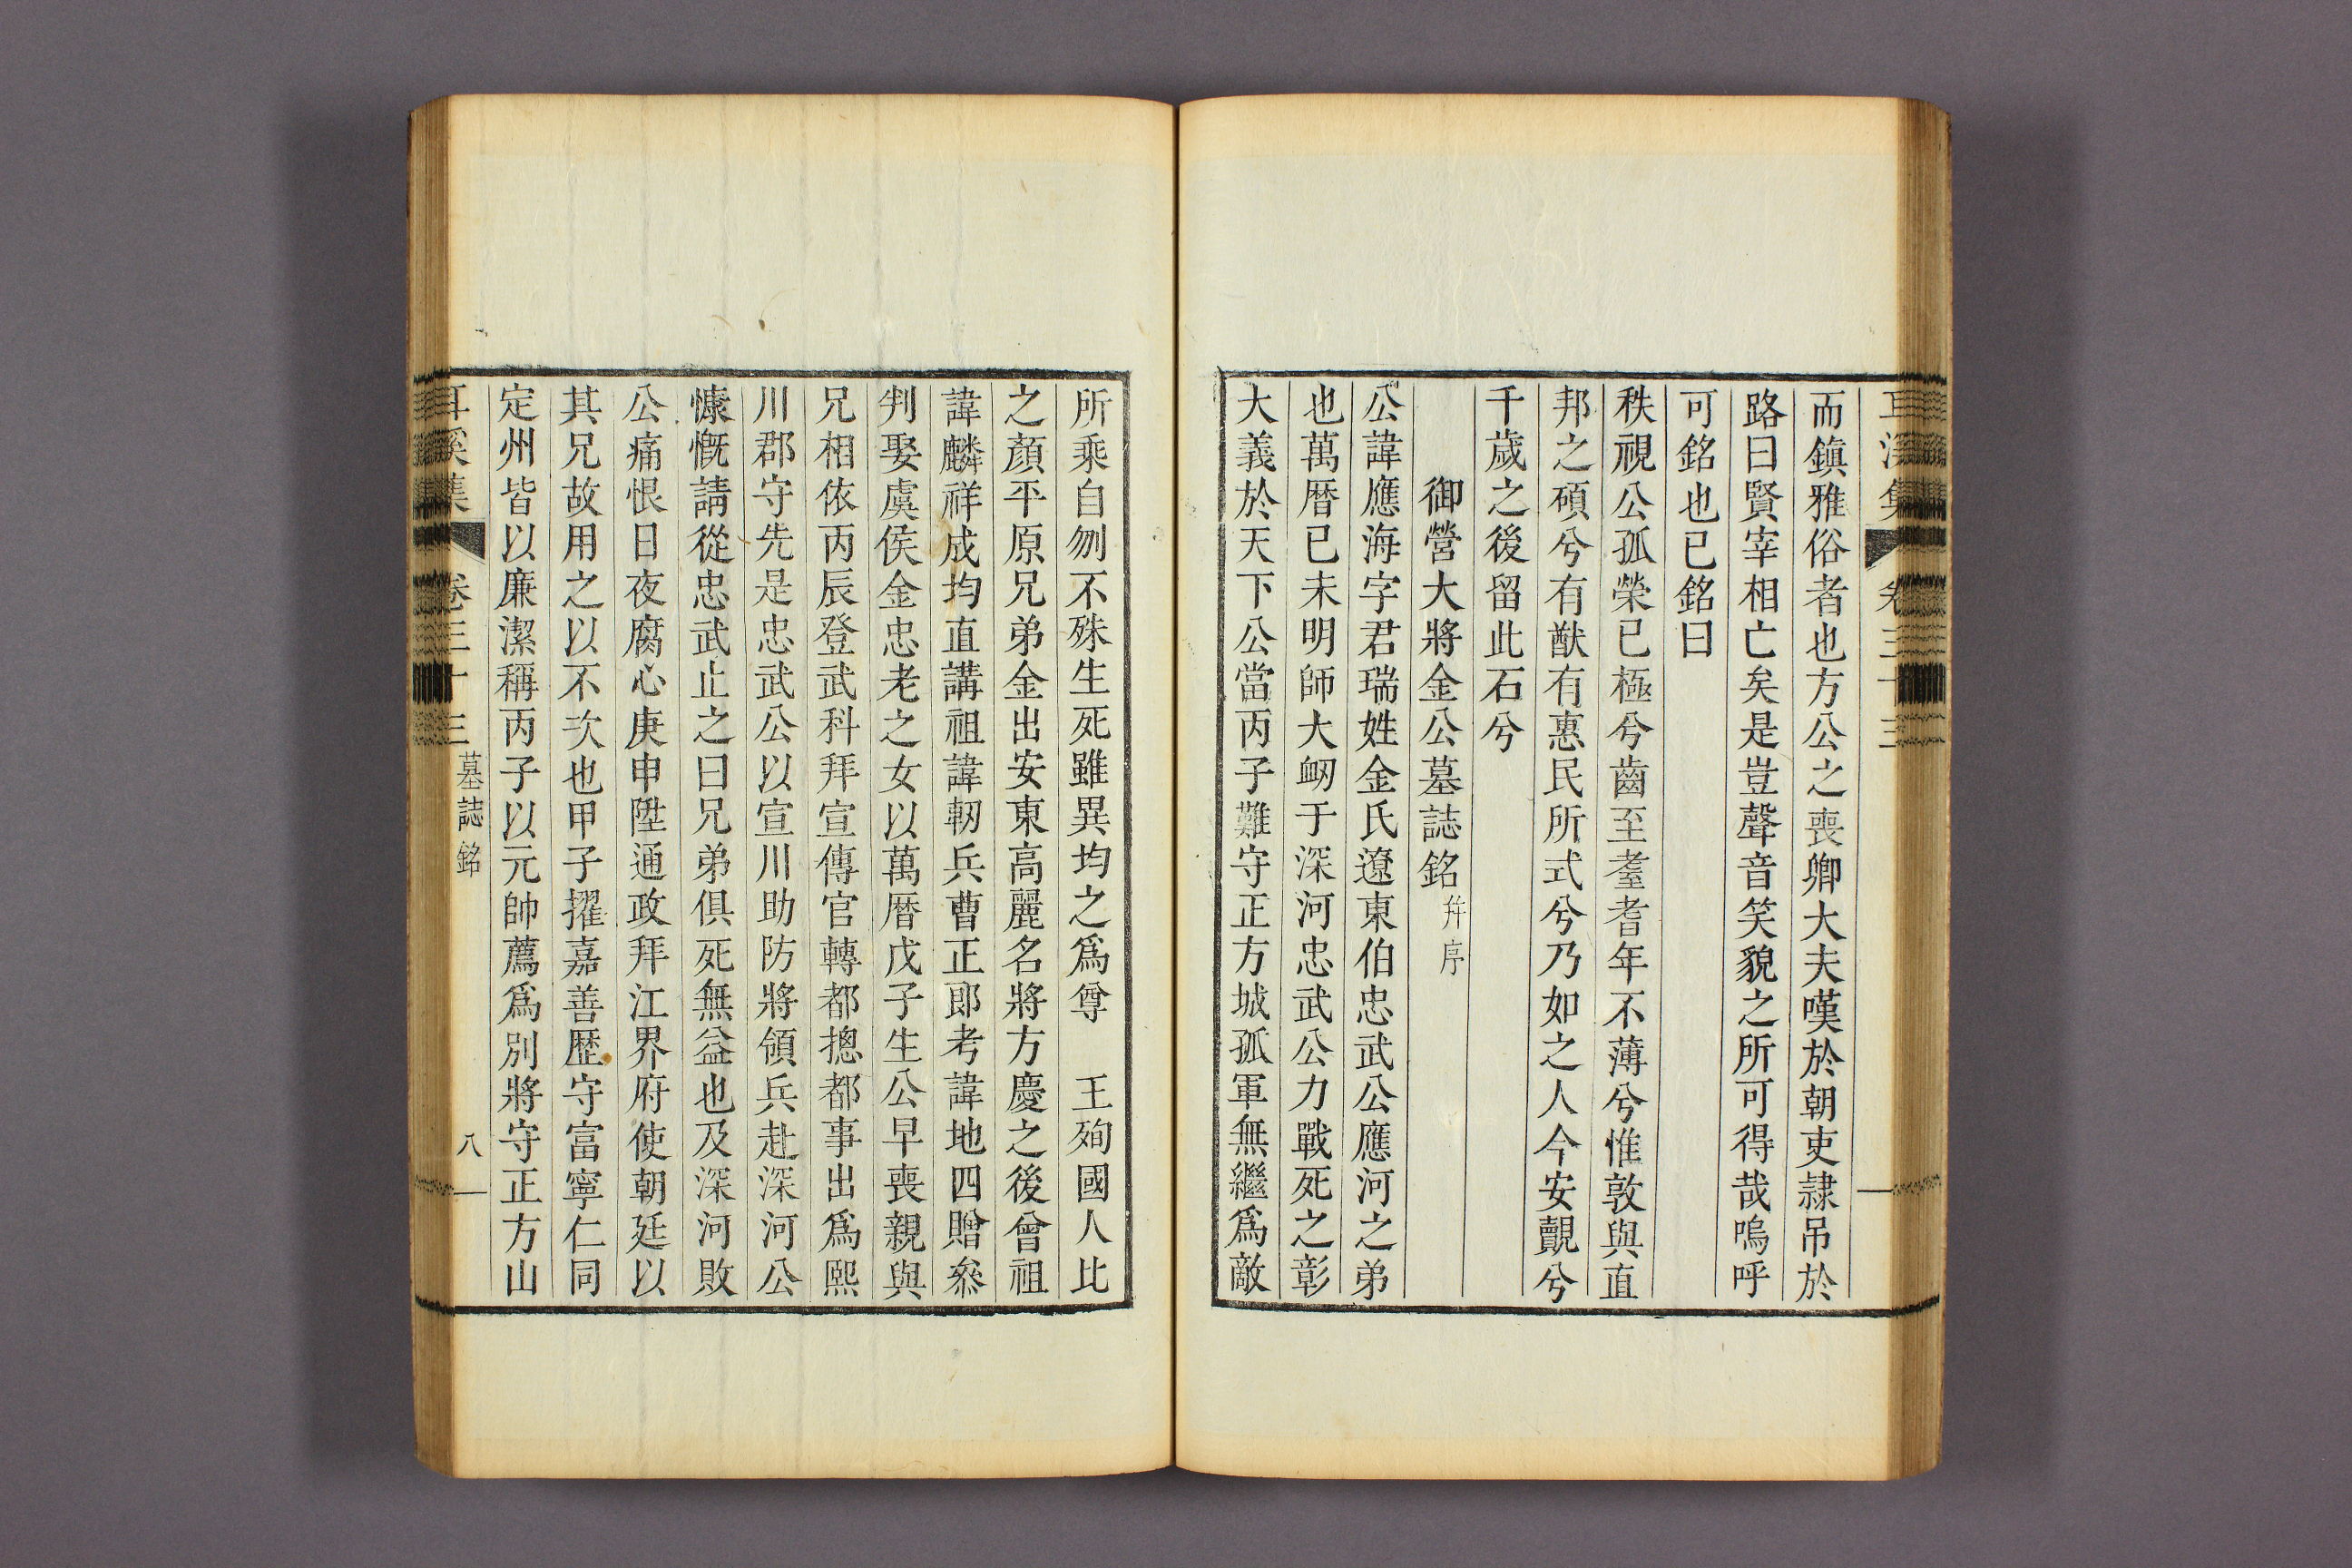 而鎭雅俗者也方公之喪卿大夫嘆於朝吏隷吊於
路曰賢宰相亡矣是豈聲音笑貌之所可得哉嗚呼
可銘也已銘曰
秩視公孤榮已極兮齒至耋耆年不薄兮惟敦與直
邦之碩兮有猷有惠民所式兮乃如之人今安覿兮
千歲之後留此石兮
御營大將金公墓誌銘幷序
公諱應海字君瑞姓金氏遼東伯忠武公應河之弟
也萬曆己未明師大衂于深河忠武公力戰死之彰
大義於天下公當丙子難守正方城孤軍無繼爲敵
所乘自刎不殊生死雖異均之爲尊　王殉國人比
之顏平原兄弟金出安東高麗名將方慶之後曾祖
諱麟祥成均直講祖諱軔兵曹正郞考諱地四贈叅
判娶虞侯金忠老之女以萬曆戊子生公早喪親與
兄相依丙辰登武科拜宣傳官轉都摠都事出爲熙
川郡守先是忠武公以宣川助防將領兵赴深河公
慷慨請從忠武止之曰兄弟俱死無益也及深河敗
公痛恨日夜腐心庚申陞通政拜江界府使朝廷以
其兄故用之以不次也甲子擢嘉善歷守富寧仁同
定州皆以廉潔稱丙子以元帥薦爲別將守正方山
耳溪集　卷三十三　墓誌銘　八